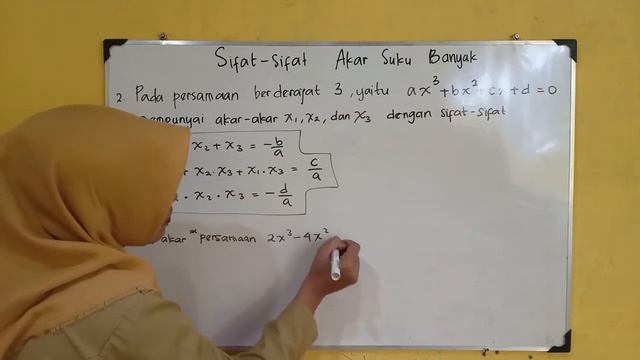 Sifat-Sifat Akar Suku Banyak
2. Pada persamaan berderajat 3, yaitu ax³ + bx² + cx + d = 0
mempunyai akar-akar x₁, x₂, dan x₃ dengan sifat-sifat
x₂ + x₃ = -b/a
+ x₂.x₃ + x₁.x₃ = c/a
. x₂ . x₃ = -d/a
akar" persamaan 2x³ - 4x²